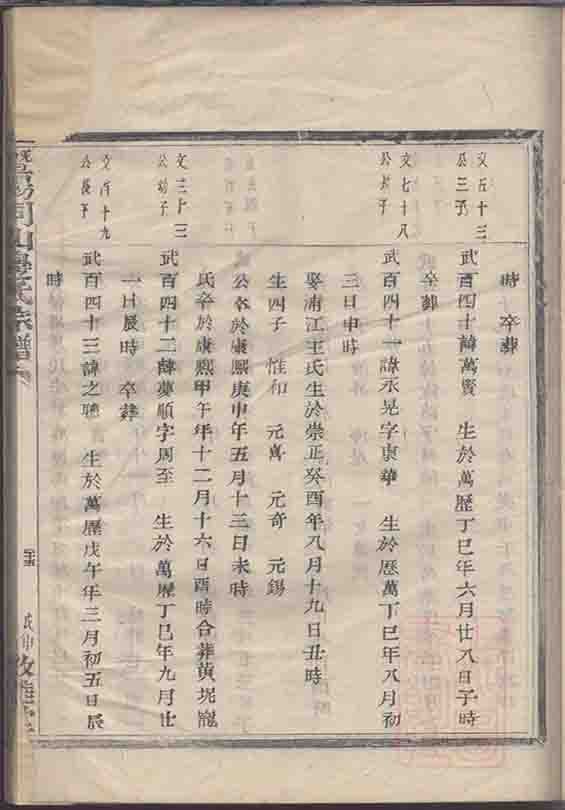 時 卒葬
文五十三
公三子
武百四十諱萬賢 生於萬歷丁巳年六月廿八日子時
卒葬
文七十八
公幼子
武百四十一諱永晃字東華 生於歷萬丁巳年八月初
三日申時
娶浦江王氏生於崇正癸酉年八月十九日丑時
生四子 惟和 元喜 元奇 元錫
公卒於康熙庚申年五月十三日未時
氏卒於康熙甲午年十二月十六日酉時合葬黄坭
文三十三
公幼子
武百四十二諱夢順字周至 生於萬歷丁巳年九月廿
一日辰時 卒葬
十九
公長子
武百四十三諱之聰 生於萬歷戊午年三月初五日辰
時
同山 氏宗譜
戊申